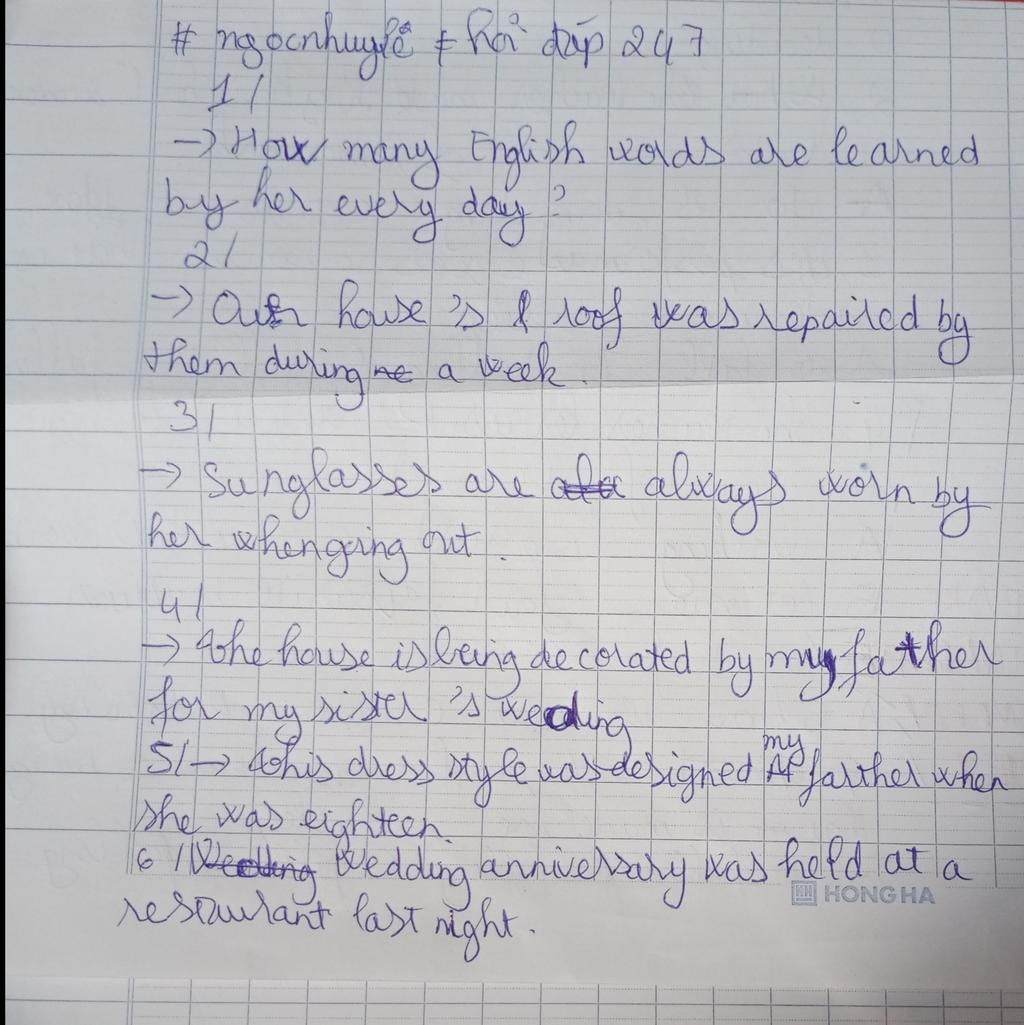 # ngocnhuylê # hỏi đáp 247
1/
→ How many English words are learned
by her every day?
2/
→ Our house's roof was repaired by
them during a week.
3/
→ Sunglasses are always worn by
her when going out.
4/
→ the house is being decorated by my father
for my sister's wedding
my
5/ → this dress style was designed farther when
she was eighteen.
6/ Wedding anniversary was held at a
HONG HA
restaurant last night.